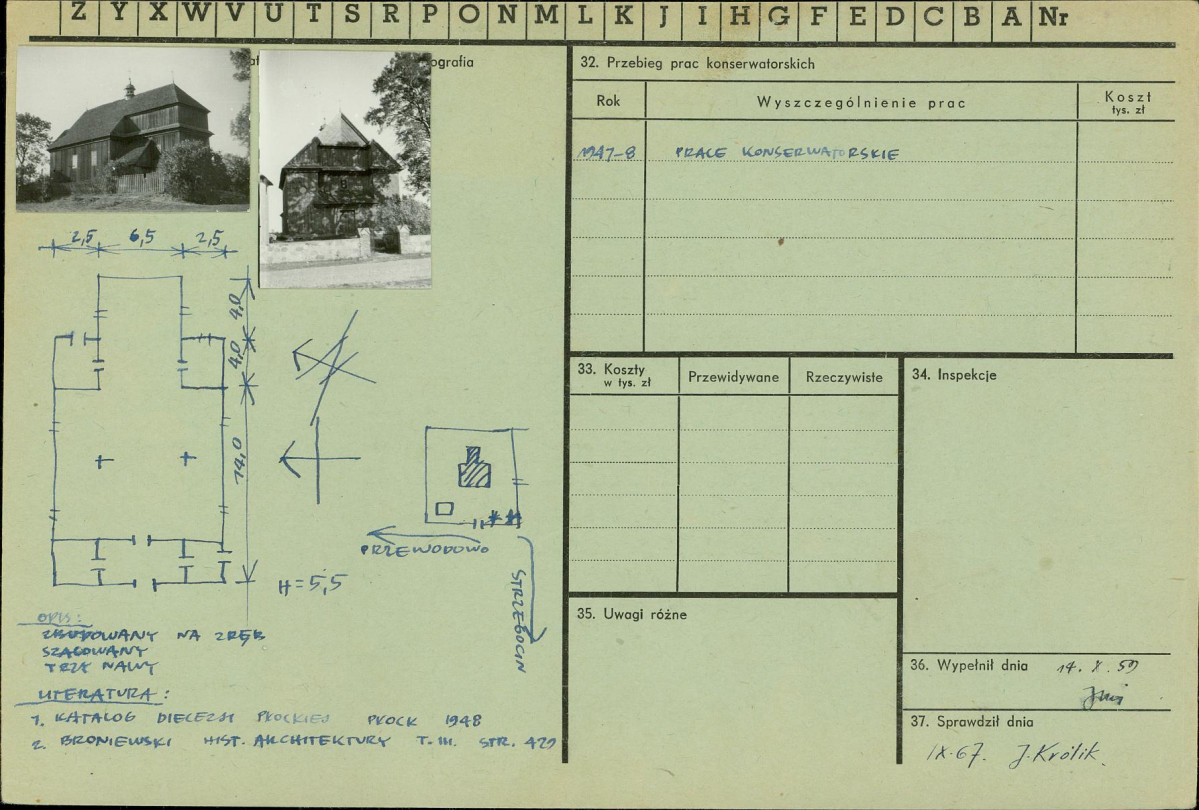 Z Y X W V U T S R P O N M L K J I H G F E D C B A Nr
ografia
2,5 6,5 2,5
4,0
4,0
14,0
H=5,5
PRZEWODOWO
STRZEGOCIN
OPIS:
ZBUDOWANY NA ZRĘB
SZALOWANY
TRZY NAWY
LITERATURA:
1. KATALOG DIECEZJI PŁOCKIEJ PŁOCK 1948
2. BRONIEWSKI HIST. ARCHITEKTURY T. III. STR. 429
32. Przebieg prac konserwatorskich
Rok Wyszczególnienie prac Koszt
tys. zł
1947-8 PRACE KONSERWATORSKIE
33. Koszty
w tys. zł
Przewidywane Rzeczywiste
34. Inspekcje
35. Uwagi różne
36. Wypełnił dnia 14. X. 59
37. Sprawdził dnia
IX. 67. J. Królik.